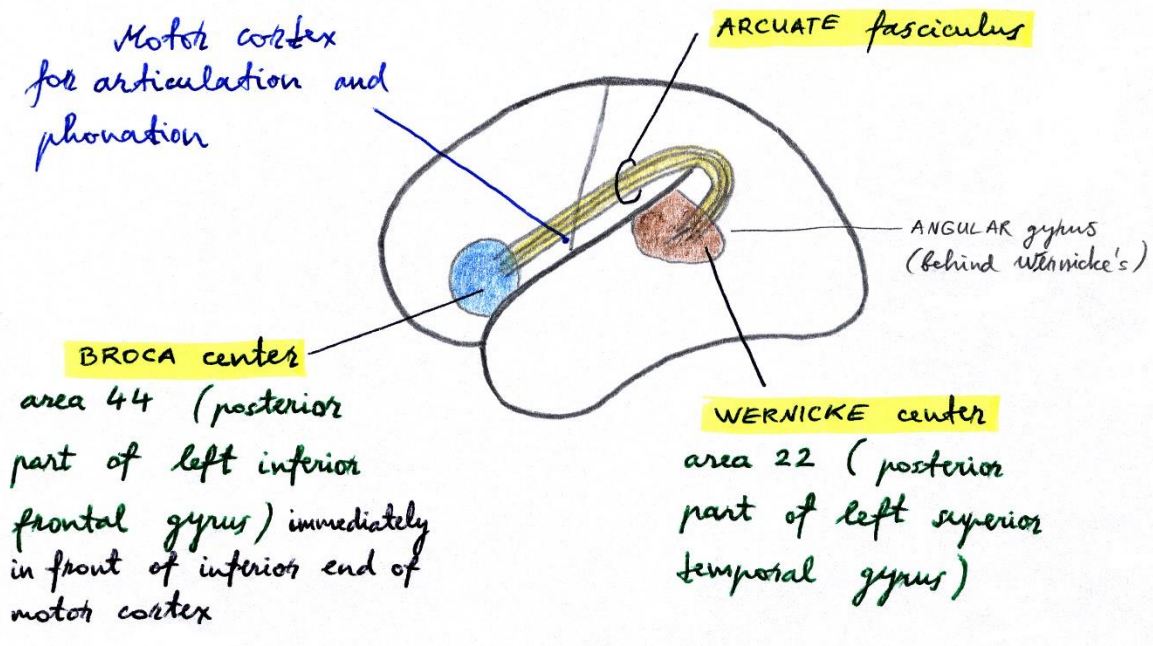 Motor cortex
for articulation and
phonation
ARCUATE fasciculus
ANGULAR gyrus
(behind Wernicke's)
BROCA center
area 44 (posterior
part of left inferior
frontal gyrus) immediately
in front of inferior end of
motor cortex
WERNICKE center
area 22 (posterior
part of left superior
temporal gyrus)